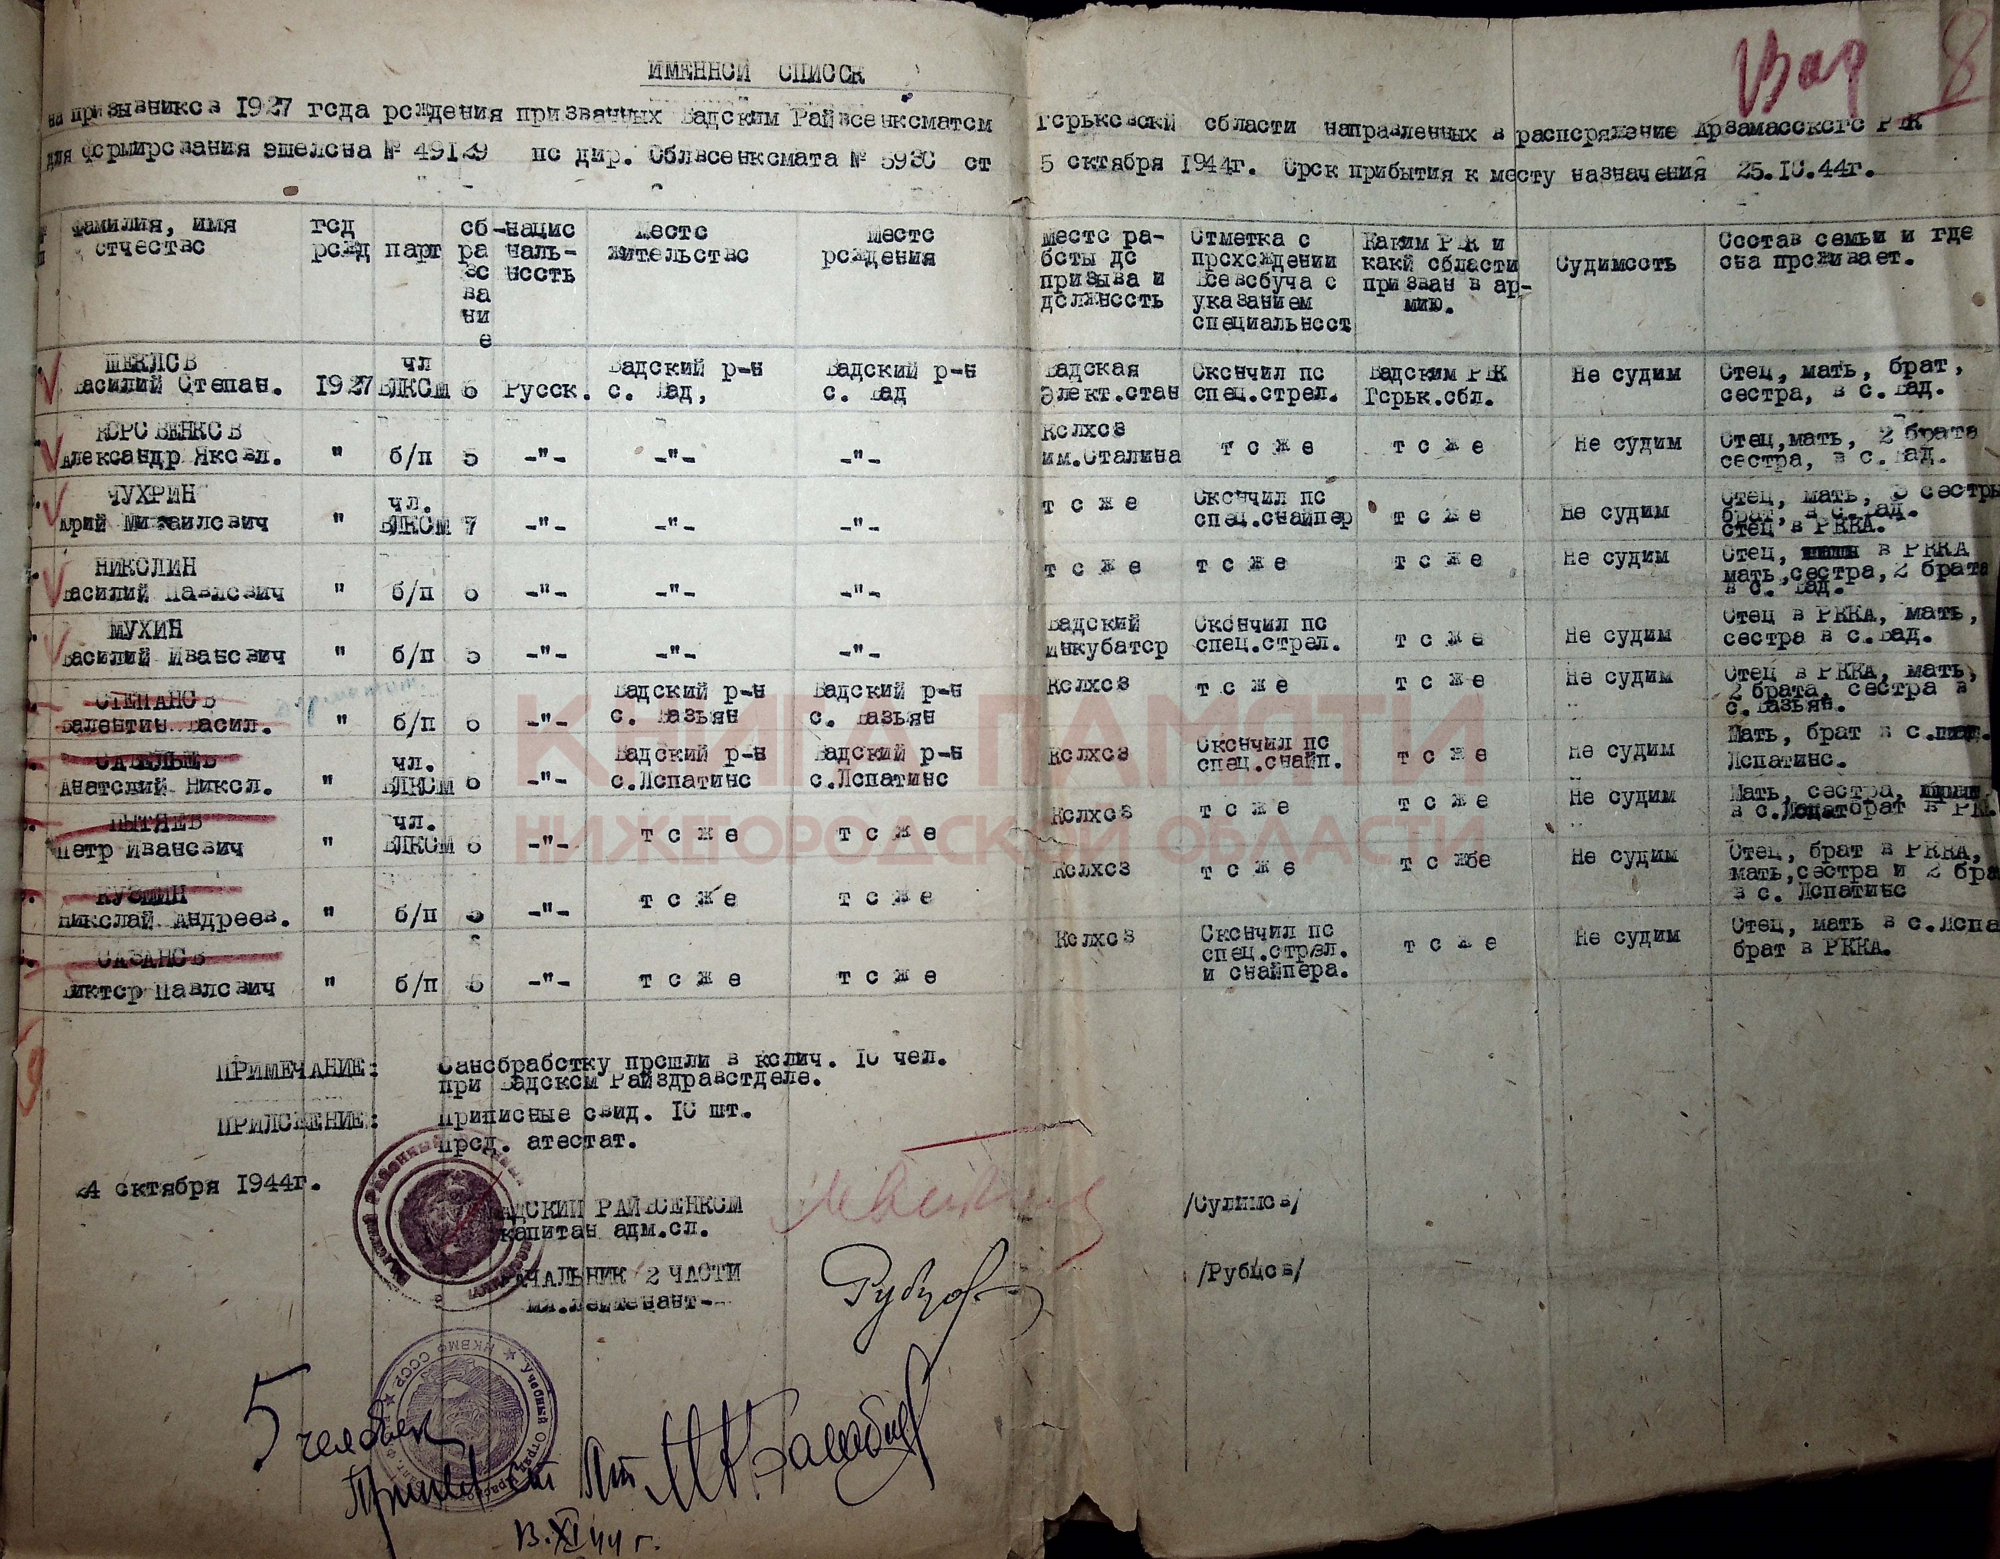 Вад 8
ИМЕННОЙ СПИСОК
на призывников 1927 года рождения призванных Вадским Райвоенкоматом Горьковской области направленных в распоряжение Арзамасского РВК
для формирования эшелона № 49129 по дир. Облвоенкомата № 5930 от 5 октября 1944г. Срок прибытия к месту назначения 25.10.44г.
Фамилия, имя отчество | год рожд | парт | образование | национальность | Место жительство | Место рождения | Место работы до призыва и должность | Отметка о прохождении Всевобуча с указанием специальност | Каким РВК и какй области призван в армию. | Судимость | Состав семьи и где она проживает.
ШЕКЛОВ Василий Степан. | 1927 | чл ВЛКСМ | 6 | Русск. | Вадский р-н с. Вад, | Вадский р-н с. Вад | Вадская Элект.стан | Окончил по спец.стрел. | Вадским РВК Горьк.обл. | Не судим | Отец, мать, брат, сестра, в с.Вад.
КОРОВЕНКОВ Александр Яковл. | " | б/п | 5 | -"- | -"- | -"- | Колхоз им.Сталина | т о ж е | т о ж е | Не судим | Отец,мать, 2 брата сестра, в с.Вад.
ЧУХРИН Юрий Михаилович | " | чл. ВЛКСМ | 7 | -"- | -"- | -"- | т о ж е | Окончил по спец.снайпер | т о ж е | Не судим | Отец, мать, 3 сестры брат, в с.Вад. отец в РККА.
НИКОЛИН Василий Павлович | " | б/п | 6 | -"- | -"- | -"- | т о ж е | т о ж е | т о ж е | Не судим | Отец, в РККА мать,сестра,2 брата в с. Вад.
МУХИН Василий Иванович | " | б/п | 5 | -"- | -"- | -"- | Вадский Инкубатор | Окончил по спец.стрел. | т о ж е | Не судим | Отец в РККА, мать, сестра в с.Вад.
СТЕПАНОВ Валентин Васил. | " | б/п | 6 | -"- | Вадский р-н с. Вазьян | Вадский р-н с. Вазьян | Колхоз | т о ж е | т о ж е | Не судим | Отец в РККА, мать, 2 брата, сестра в с.Вазьян.
Анатолий Никол. | " | чл. ВЛКСМ | 6 | -"- | Вадский р-н с.Лопатино | Вадский р-н с.Лопатино | Колхоз | Окончил по спец.снайп. | т о ж е | Не судим | Мать, брат в с. Лопатино.
ПЫТЯЕВ Петр Иванович | " | чл. ВЛКСМ | 6 | -"- | т о ж е | т о ж е | Колхоз | т о ж е | т о ж е | Не судим | Мать, сестра, в с.Лопат брат в РК.
КУЗМИН Николай Андреев. | " | б/п | 5 | -"- | т о ж е | т о ж е | Колхоз | т о ж е | т о жбе | Не судим | Отец, брат в РККА, мать,сестра и 2 бра в с. Лопатино
САЗАНОВ Виктор Павлович | " | б/п | 5 | -"- | т о ж е | т о ж е | Колхоз | Окончил по спец.стрел. и снайпера. | т о ж е | Не судим | Отец, мать в с.Лопа брат в РККА.
ПРИМЕЧАНИЕ: Санобработку прошли в колич. 10 чел.
при Вадском Райздравотделе.
ПРИЛОЖЕНИЕ: Приписные свид. 10 шт.
Прод. атестат.
24 октября 1944г.
ВАДСКИЙ РАЙВОЕНКОМ
капитан адм.сл. /Сулимов/
НАЧАЛЬНИК 2 ЧАСТИ
мл.лейтенант- Рубцов /Рубцов/
НКВМФ СССР
Учебный Отряд
5 человек
Принял
13.XI 44 г.
КНИГА ПАМЯТИ
НИЖЕГОРОДСКОЙ ОБЛАСТИ